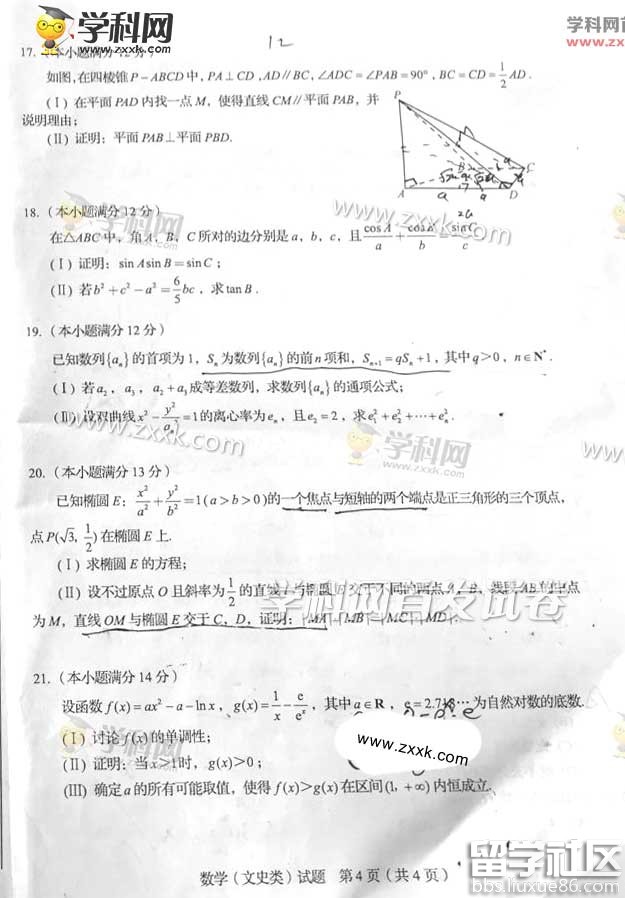 学科网
www.zxxk.com
学科网
www.zxxk.
12
17.（本小题满分12分）
如图,在四棱锥P－ABCD中,PA⊥CD,AD∥BC,∠ADC＝∠PAB＝90°,BC＝CD＝1/2 AD.
(Ⅰ) 在平面PAD内找一点M,使得直线CM∥平面PAB,并
说明理由;
(Ⅱ) 证明:平面PAB⊥平面PBD.
P
B
C
A
D
18.（本小题满分12分）
在△ABC中,角A,B,C所对的边分别是a,b,c,且cos A/a＋cos B/b＝sin C/c.
(Ⅰ) 证明:sin A sin B＝sin C;
(Ⅱ) 若b²＋c²－a²＝6/5 bc,求tan B.
19.（本小题满分12分）
已知数列{aₙ}的首项为1,Sₙ为数列{aₙ}的前n项和,Sₙ₊₁＝qSₙ＋1,其中q＞0,n∈N*
(Ⅰ) 若a₂,a₃,a₂＋a₃成等差数列,求数列{aₙ}的通项公式;
(Ⅱ) 设双曲线x²－y²/aₙ²＝1的离心率为eₙ,且e₂＝2,求e₁²＋e₂²＋⋯＋eₙ².
20.（本小题满分13分）
已知椭圆E:x²/a²＋y²/b²＝1(a＞b＞0)的一个焦点与短轴的两个端点是正三角形的三个顶点,
点P(√3,1/2)在椭圆E上.
(Ⅰ) 求椭圆E的方程;
(Ⅱ) 设不过原点O且斜率为1/2的直线l与椭圆E交于不同的两点A,B,线段AB的中点
为M,直线OM与椭圆E交于C,D,证明:|MA|·|MB|＝|MC|·|MD|.
21.（本小题满分14分）
设函数f(x)＝ax²－a－ln x,g(x)＝1/x－e/eˣ,其中a∈R,e＝2.718⋯为自然对数的底数.
(Ⅰ) 讨论f(x)的单调性;
(Ⅱ) 证明:当x＞1时,g(x)＞0;
(Ⅲ) 确定a的所有可能取值,使得f(x)＞g(x)在区间(1,＋∞)内恒成立.
www.zxxk.com
学科网首发试卷
数学（文史类）试题 第4页（共4页）
留学社区
bbs.liuxue86.com